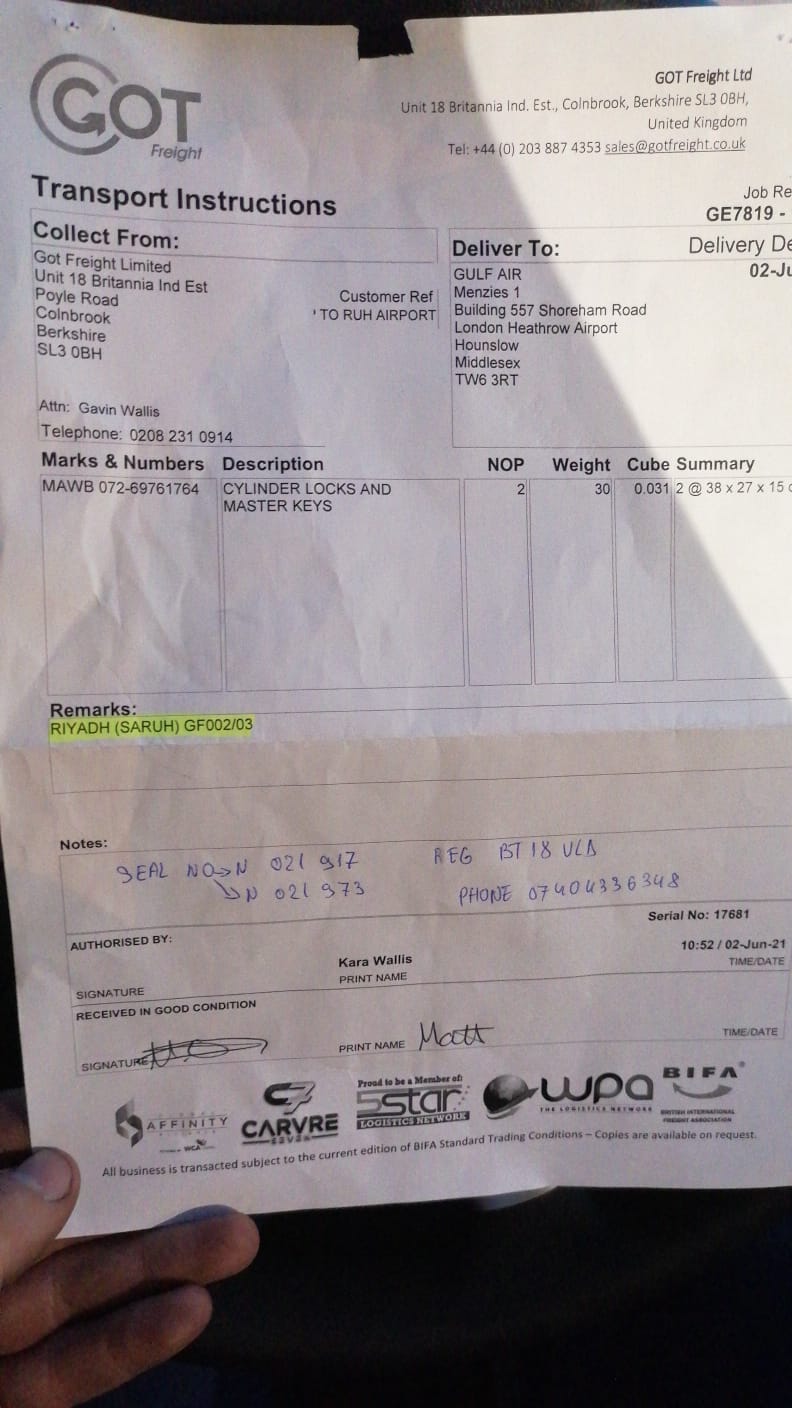 GOT
Freight
GOT Freight Ltd
Unit 18 Britannia Ind. Est., Colnbrook, Berkshire SL3 0BH,
United Kingdom
Tel: +44 (0) 203 887 4353 sales@gotfreight.co.uk
Transport Instructions
Job Re
GE7819 -
Collect From:
Got Freight Limited
Unit 18 Britannia Ind Est
Poyle Road
Colnbrook
Berkshire
SL3 0BH
Customer Ref
' TO RUH AIRPORT
Attn: Gavin Wallis
Telephone: 0208 231 0914
Deliver To:
GULF AIR
Menzies 1
Building 557 Shoreham Road
London Heathrow Airport
Hounslow
Middlesex
TW6 3RT
Delivery De
02-Ju
Marks & Numbers Description NOP Weight Cube Summary
MAWB 072-69761764 CYLINDER LOCKS AND 2 30 0.031 2 @ 38 x 27 x 15 c
MASTER KEYS
Remarks:
RIYADH (SARUH) GF002/03
Notes:
SEAL NO→N 021 917 REG BT18
↘N 021 973 PHONE 07404336348
Serial No: 17681
AUTHORISED BY:
Kara Wallis 10:52 / 02-Jun-21
SIGNATURE PRINT NAME TIME/DATE
RECEIVED IN GOOD CONDITION
SIGNATURE PRINT NAME Matt TIME/DATE
AFFINITY
WCA
CARVRE
SEVEN
Proud to be a Member of:
5star
LOGISTICS NETWORK
wpa
THE LOGISTICS NETWORK
BIFA
BRITISH INTERNATIONAL
FREIGHT ASSOCIATION
All business is transacted subject to the current edition of BIFA Standard Trading Conditions – Copies are available on request.